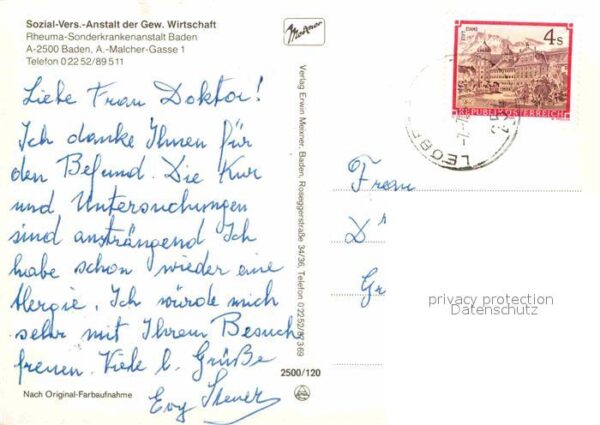 Sozial-Vers.-Anstalt der Gew. Wirtschaft
Rheuma-Sonderkrankenanstalt Baden
A-2500 Baden, A.-Malcher-Gasse 1
Telefon 0 22 52/89 5 11
Liebe Frau Doktor!
Ich danke Ihnen für
den Befund. Die Kur
und Untersuchungen
sind ansträngend Ich
habe schon wieder eine
Alergie. Ich würde mich
sehr mit Ihrem Besuch
freuen. Viele l. Grüße
Evy Steurer
Nach Original-Farbaufnahme
2500/120
Meixner
Verlag Erwin Meixner, Baden, Roseggerstraße 34/36, Telefon 0 22 52/87 3 69
STIFT STAMS
4 S
REPUBLIK ÖSTERREICH
LEOB
Frau
D
Gr
privacy protection
Datenschutz